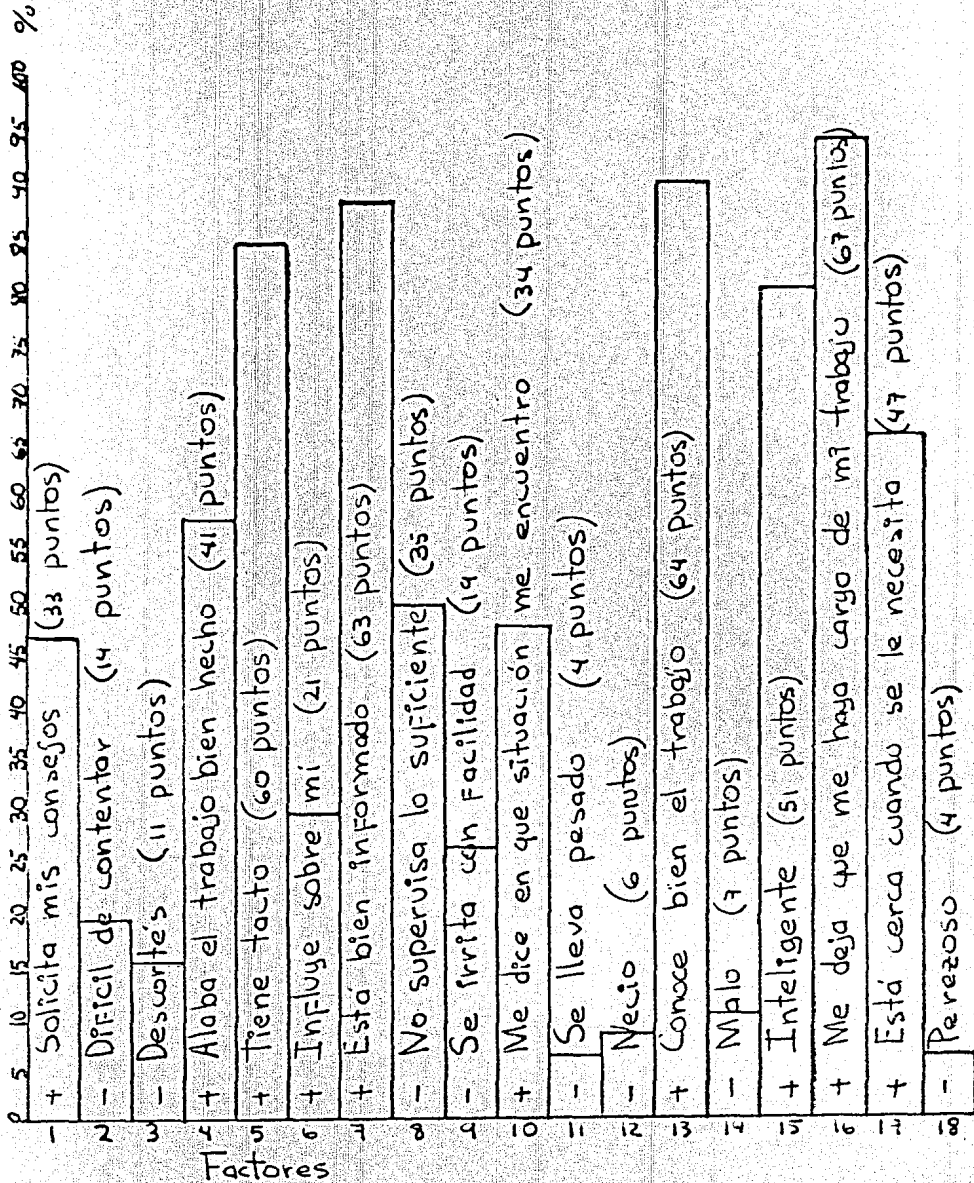 0 5 10 15 20 25 30 35 40 45 50 55 60 65 70 75 80 85 90 95 100 %
1 + Solicita mis consejos (33 puntos)
2 - Difícil de contentar (14 puntos)
3 - Descortés (11 puntos)
4 + Alaba el trabajo bien hecho (41 puntos)
5 + Tiene tacto (60 puntos)
6 + Influye sobre mí (21 puntos)
7 + Está bien informado (63 puntos)
8 - No supervisa lo suficiente (35 puntos)
9 - Se irrita con facilidad (19 puntos)
10 + Me dice en que situación me encuentro (34 puntos)
11 - Se lleva pesado (4 puntos)
12 - Necio (6 puntos)
13 + Conoce bien el trabajo (64 puntos)
14 - Malo (7 puntos)
15 + Inteligente (51 puntos)
16 + Me deja que me haga cargo de mi trabajo (67 puntos)
17 + Está cerca cuando se le necesita (47 puntos)
18 - Perezoso (4 puntos)
Factores